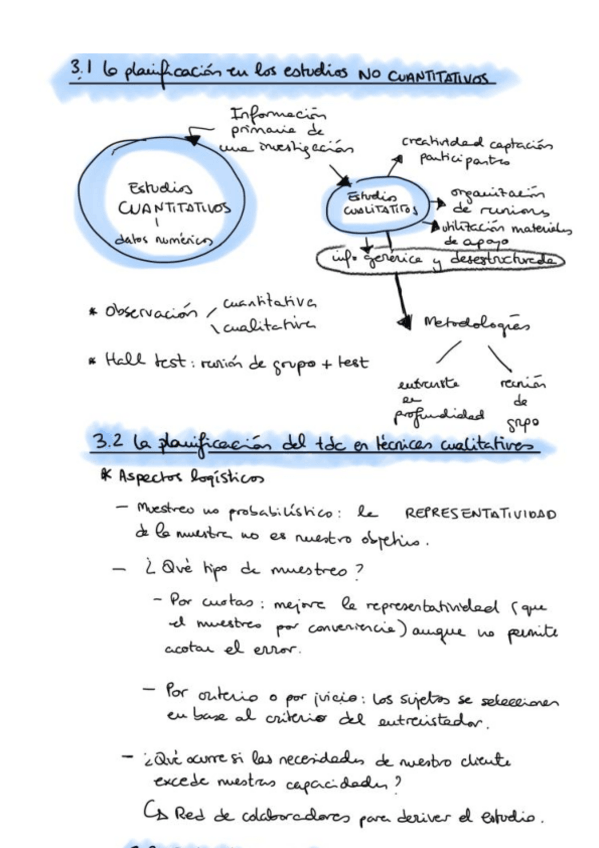 3.1 la planificación en los estudios NO CUANTITATIVOS
Información
primaria de
una investigación
Estudios
CUANTITATIVOS
datos numéricos
creatividad captación
participantes
Estudios
CUALITATIVOS
organización
de reuniones
utilización materiales
de apoyo
info genérica y desestructurada
* Observación
cuantitativa
cualitativa
* Hall test: reunión de grupo + test
Metodologías
entrevista
en
profundidad
reunión
de
grupo
3.2 la planificación del tdc en técnicas cualitativas
* Aspectos logísticos
- Muestreo no probabilístico: la REPRESENTATIVIDAD
de la muestra no es nuestro objetivo.
- ¿Qué tipo de muestreo?
- Por cuotas: mejora la representatividad (que
el muestreo por conveniencia) aunque no permite
acotar el error.
- Por criterio o por juicio: los sujetos se seleccionan
en base al criterio del entrevistador.
- ¿Qué ocurre si las necesidades de nuestro cliente
excede nuestras capacidades?
↳ Red de colaboradores para derivar el estudio.